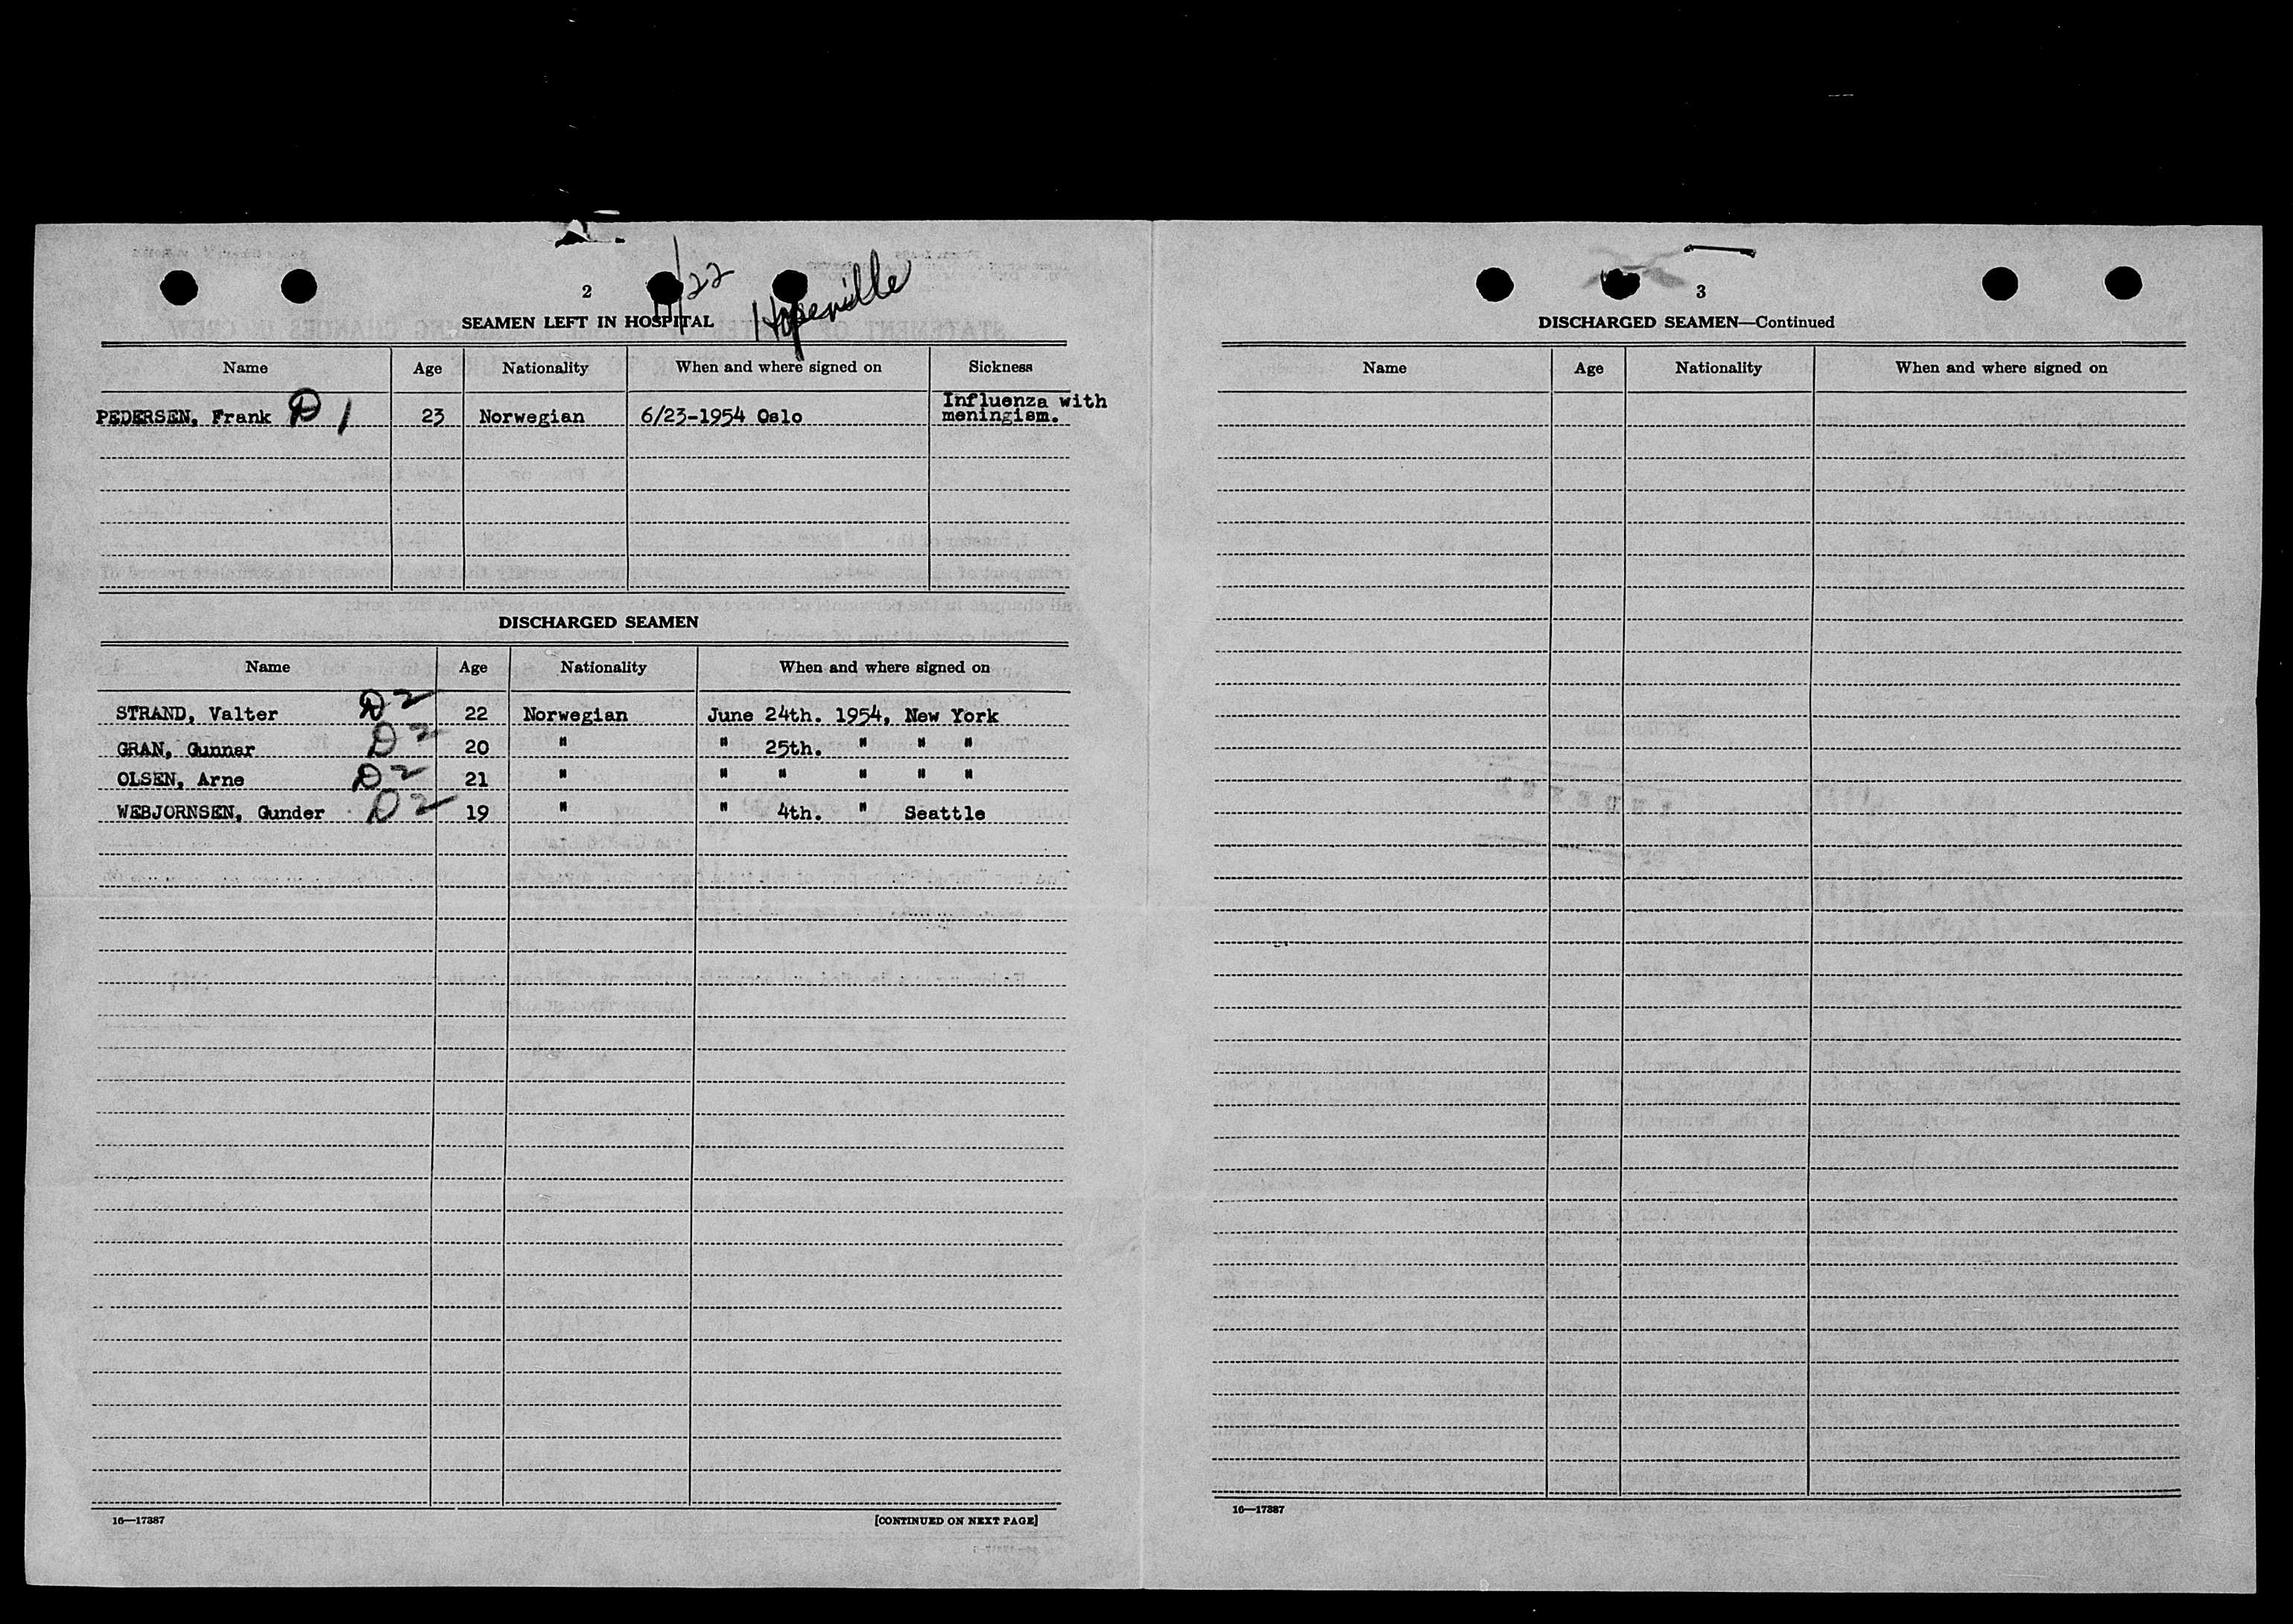 22
Hopeville
2
SEAMEN LEFT IN HOSPITAL
Name Age Nationality When and where signed on Sickness
PEDERSEN, Frank D 1 23 Norwegian 6/23-1954 Oslo Influenza with
meningism.
DISCHARGED SEAMEN
Name Age Nationality When and where signed on
STRAND, Valter D 2 22 Norwegian June 24th. 1954, New York
GRAN, Gunnar D 2 20 " " 25th. " " "
OLSEN, Arne D 2 21 " " " " " "
WEBJORNSEN, Gunder D 2 19 " " 4th. " Seattle
16—17387 [CONTINUED ON NEXT PAGE]
3
DISCHARGED SEAMEN—Continued
Name Age Nationality When and where signed on
16—17387